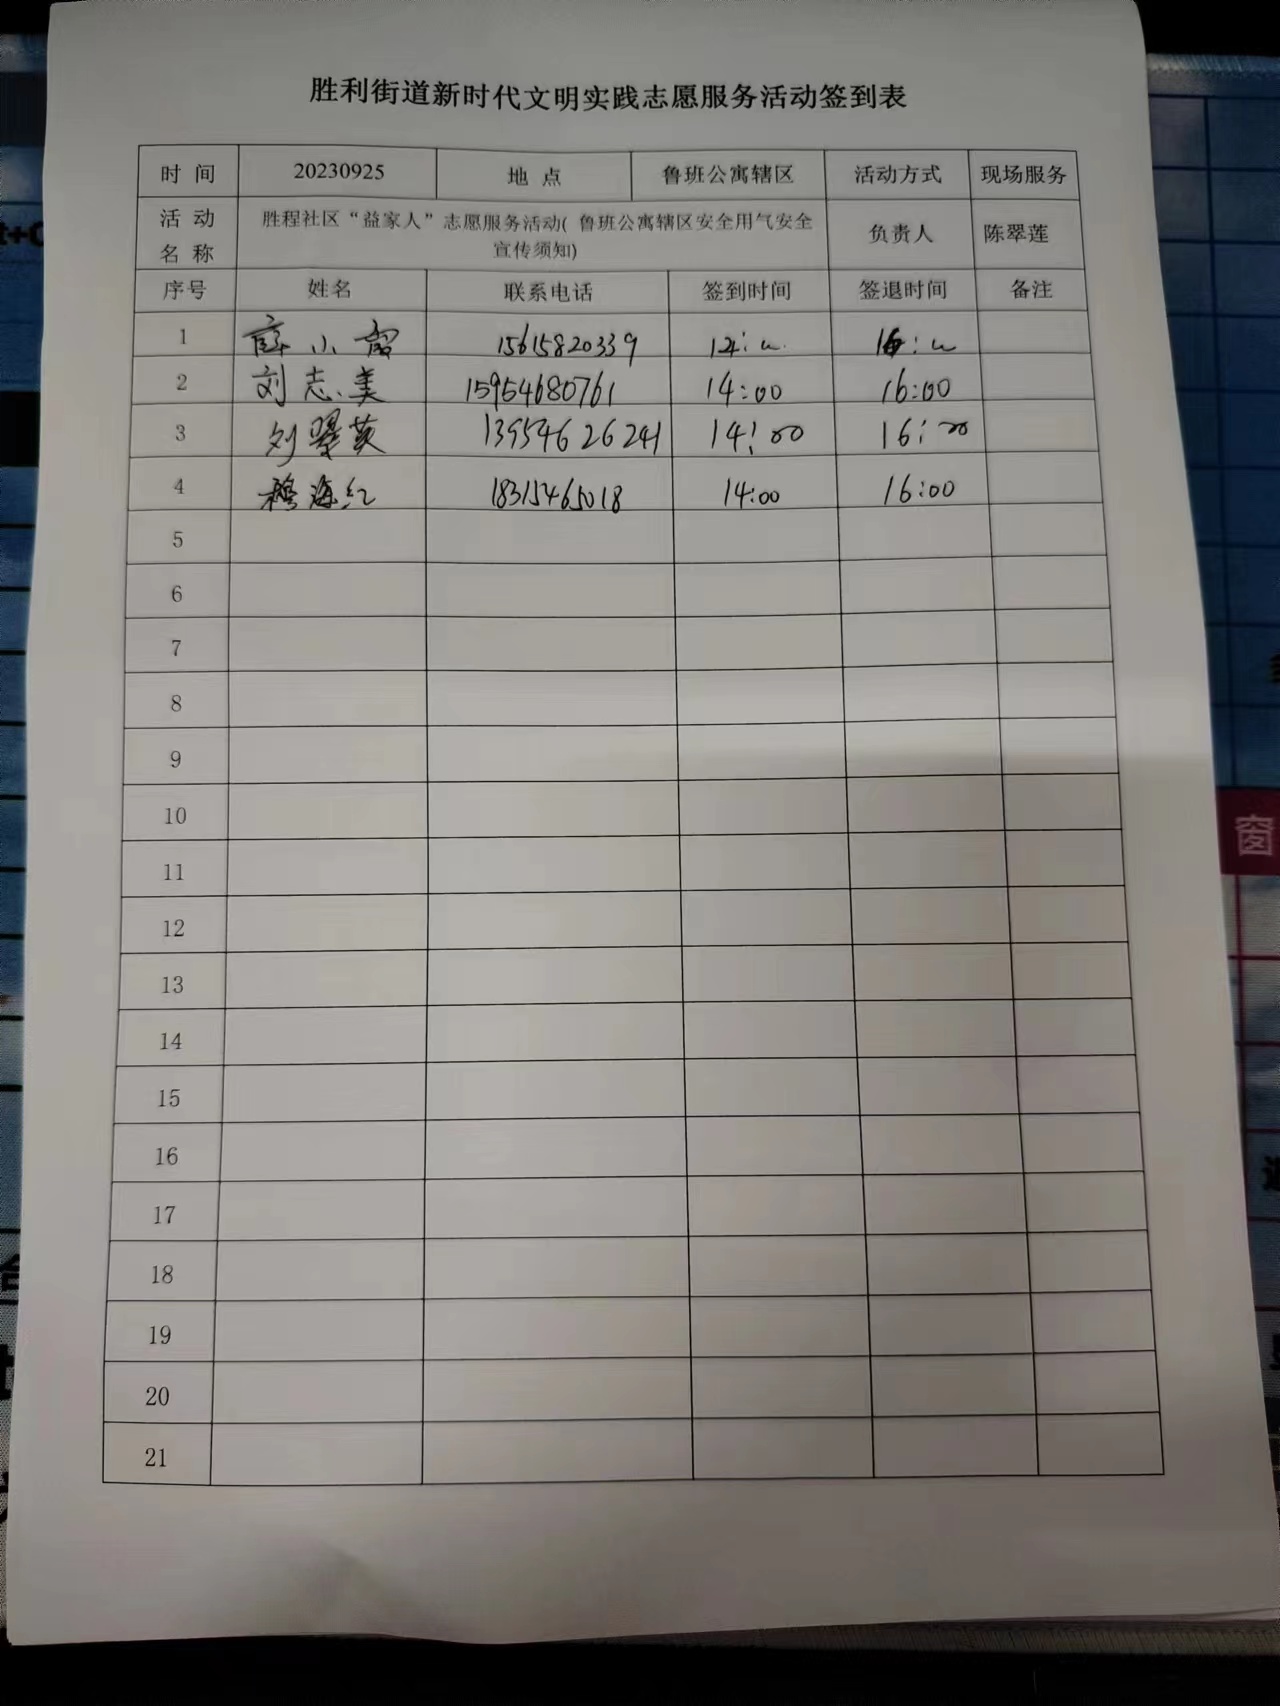 胜利街道新时代文明实践志愿服务活动签到表
时 间 20230925 地 点 鲁班公寓辖区 活动方式 现场服务
活 动 名 称 胜程社区“益家人”志愿服务活动( 鲁班公寓辖区安全用气安全
宣传须知) 负责人 陈翠莲
序号 姓名 联系电话 签到时间 签退时间 备注
1 薛小富 15615820339
2 刘志美 15954680761 14:00 16:00
3 刘翠英 13954626241 14:00 16:00
4 穆海红 18315465018 14:00 16:00
5
6
7
8
9
10
11
12
13
14
15
16
17
18
19
20
21
窗